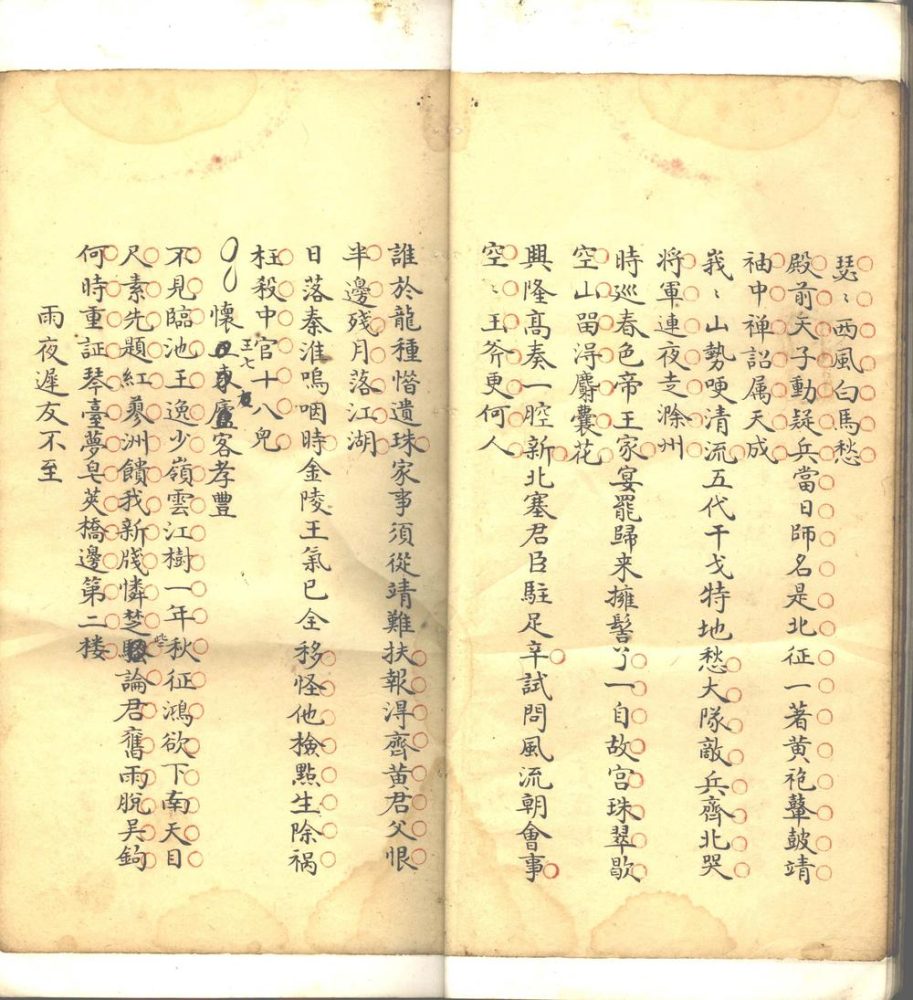 瑟〻西風白馬愁
殿前天子動疑兵當日師名是北征一著黄袍鼙皷靖
袖中禅詔属天成
峩〻山勢哽清流五代干戈特地愁大隊敵兵齊北哭
将軍連夜走滁州
時巡春色帝王家宴罷歸来擁髻丫一自故宫珠翠歇
空山畱淂麝囊花
興隆髙奏一腔新北塞君臣駐足辛試問風流朝會事
空〻玉斧更何人
誰於龍種惜遺珠家事須從靖難扶報淂齊黄君父恨
半邊残月落江湖
日落秦淮嗚咽時金陵王氣已全移怪他檢點生除禍
枉殺中官十八兒
懷王七客孝豐
不見臨池王逸少嶺雲江樹一年秋征鴻欲下南天目
尺素先題紅蓼洲饋我新牋憐楚些論君舊雨脫吴鉤
何時重証琴臺夢皂莢橋邊第二楼
雨夜遲友不至